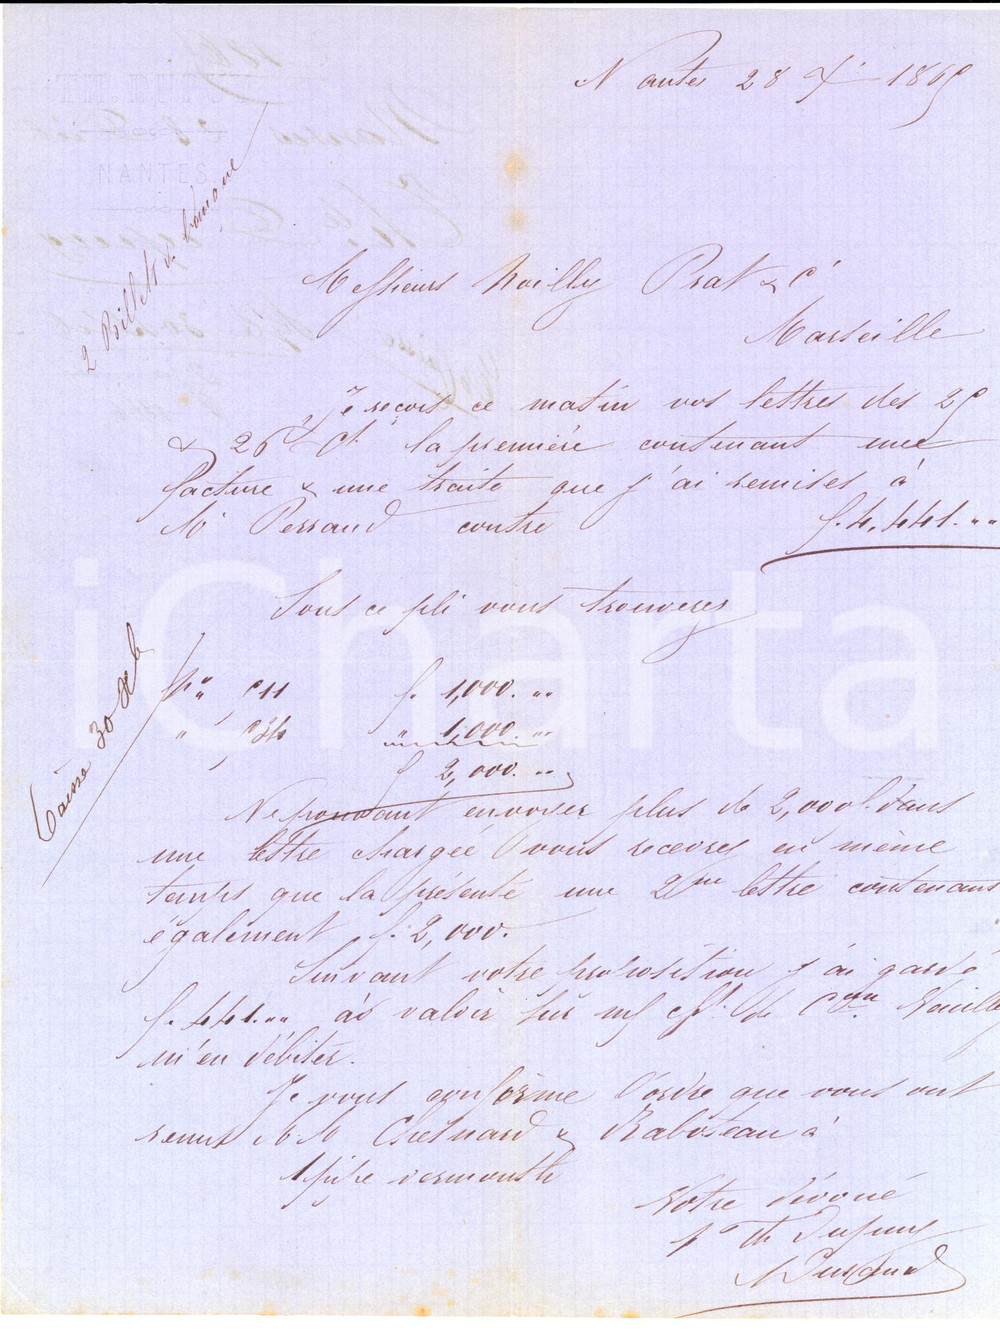 Nantes 28 Xe 1865
2 Billets de banque
Messieurs Noilly Prat & Cie
Marseille
Je reçois ce matin vos lettres des 25
& 26 ct la première contenant une
facture & une traite que j'ai remises à
Mr Perraud contre f. 4,441. ""
Sous ce pli vous trouverez
f. 1,000. ""
" 1,000. ""
f. 2,000. ""
Caisse 30 Xbe
Ne pouvant envoyer plus de 2,000 f. dans
une lettre chargée vous recevrez en même
temps que la présente une 2me lettre contenant
également f. 2,000.
Suivant votre proposition j'ai gardé
f. 441. "" à valoir sur m/ c/ de Con Veuillez
m'en débiter.
Je vous confirme l'ordre que vous ont
remis MM Chesnard & Raboteau à
1 pipe vermouth
Votre dévoué
po Th Dupuy
NANTES
iCharta